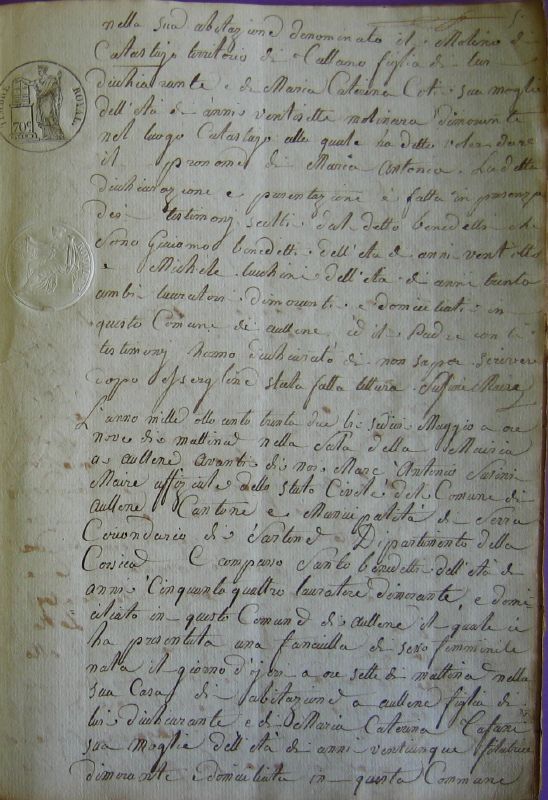 5.
nella sua abitazione denominato il Molino di
Catastajo territorio di Aullano figlia di lui
dichiarante e di Maria Caterina Coti sua moglie
dell'età di anni ventisette molinara dimorante
nel luogo Catastajo alla quale ha detto voler dare
il pronome di Maria Antonia. La detta
dichiarazione e presentazione è fatta in presenza
dei testimonj scelti dal detto benedetti che
sono Giacomo benedetti dell'età di anni vent'otto
e Michele luchini dell'età di anni trenta
ambi lavoratori dimoranti e domiciliati in
questo Comune di aullene ed il Padre con li
testimonj hanno dichiarato di non saper scrivere
doppo essergline stata fatta lettura
TIMBRE ROYAL
70c
L'anno mille otto cento trenta due li sedici Maggio a ore
nove di mattina nella Sala della Mairia
a aullene avanti di noi Marc Antonio
Maire uffiziale dello stato Civile del Comune di
aullene Cantone e Municipalità di Serra
Circondario di Sartene Dipartimento della
Corsica È comparso Santo benedetti dell'età di
anni Cinquanta quattro lavoratore dimorante e domi
ciliato in questo Comune di aullene il quale ci
ha presentata una fanciulla di sesso femminile
nata il giorno d'jeri a ore sette di mattina nella
sua Casa di abitazione a aullene figlia di
lui dichiarante e di Maria Caterina
sua moglie dell'età di anni venticinque filatrice
dimorante e domiciliata in questa Commune